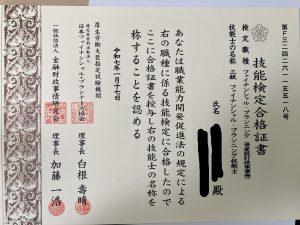 第F三二四二六一五一五一八号
技能検定合格証書
検定職種 ファイナンシャル・プランニング（資産設計提案業務）
技能士の名称 二級ファイナンシャル・プランニング技能士
氏名
殿
あなたは職業能力開発促進法の規定による
右の職種に係る技能検定に合格したので
ここに合格証書を授与し右の技能士の名称を
称することを認める
令和七年一月十七日
厚生労働大臣指定試験機関
日本ファイナンシャル・プランナーズ協会
理事長 白根壽晴
一般社団法人 金融財政事情研究会
理事長 加藤一浩